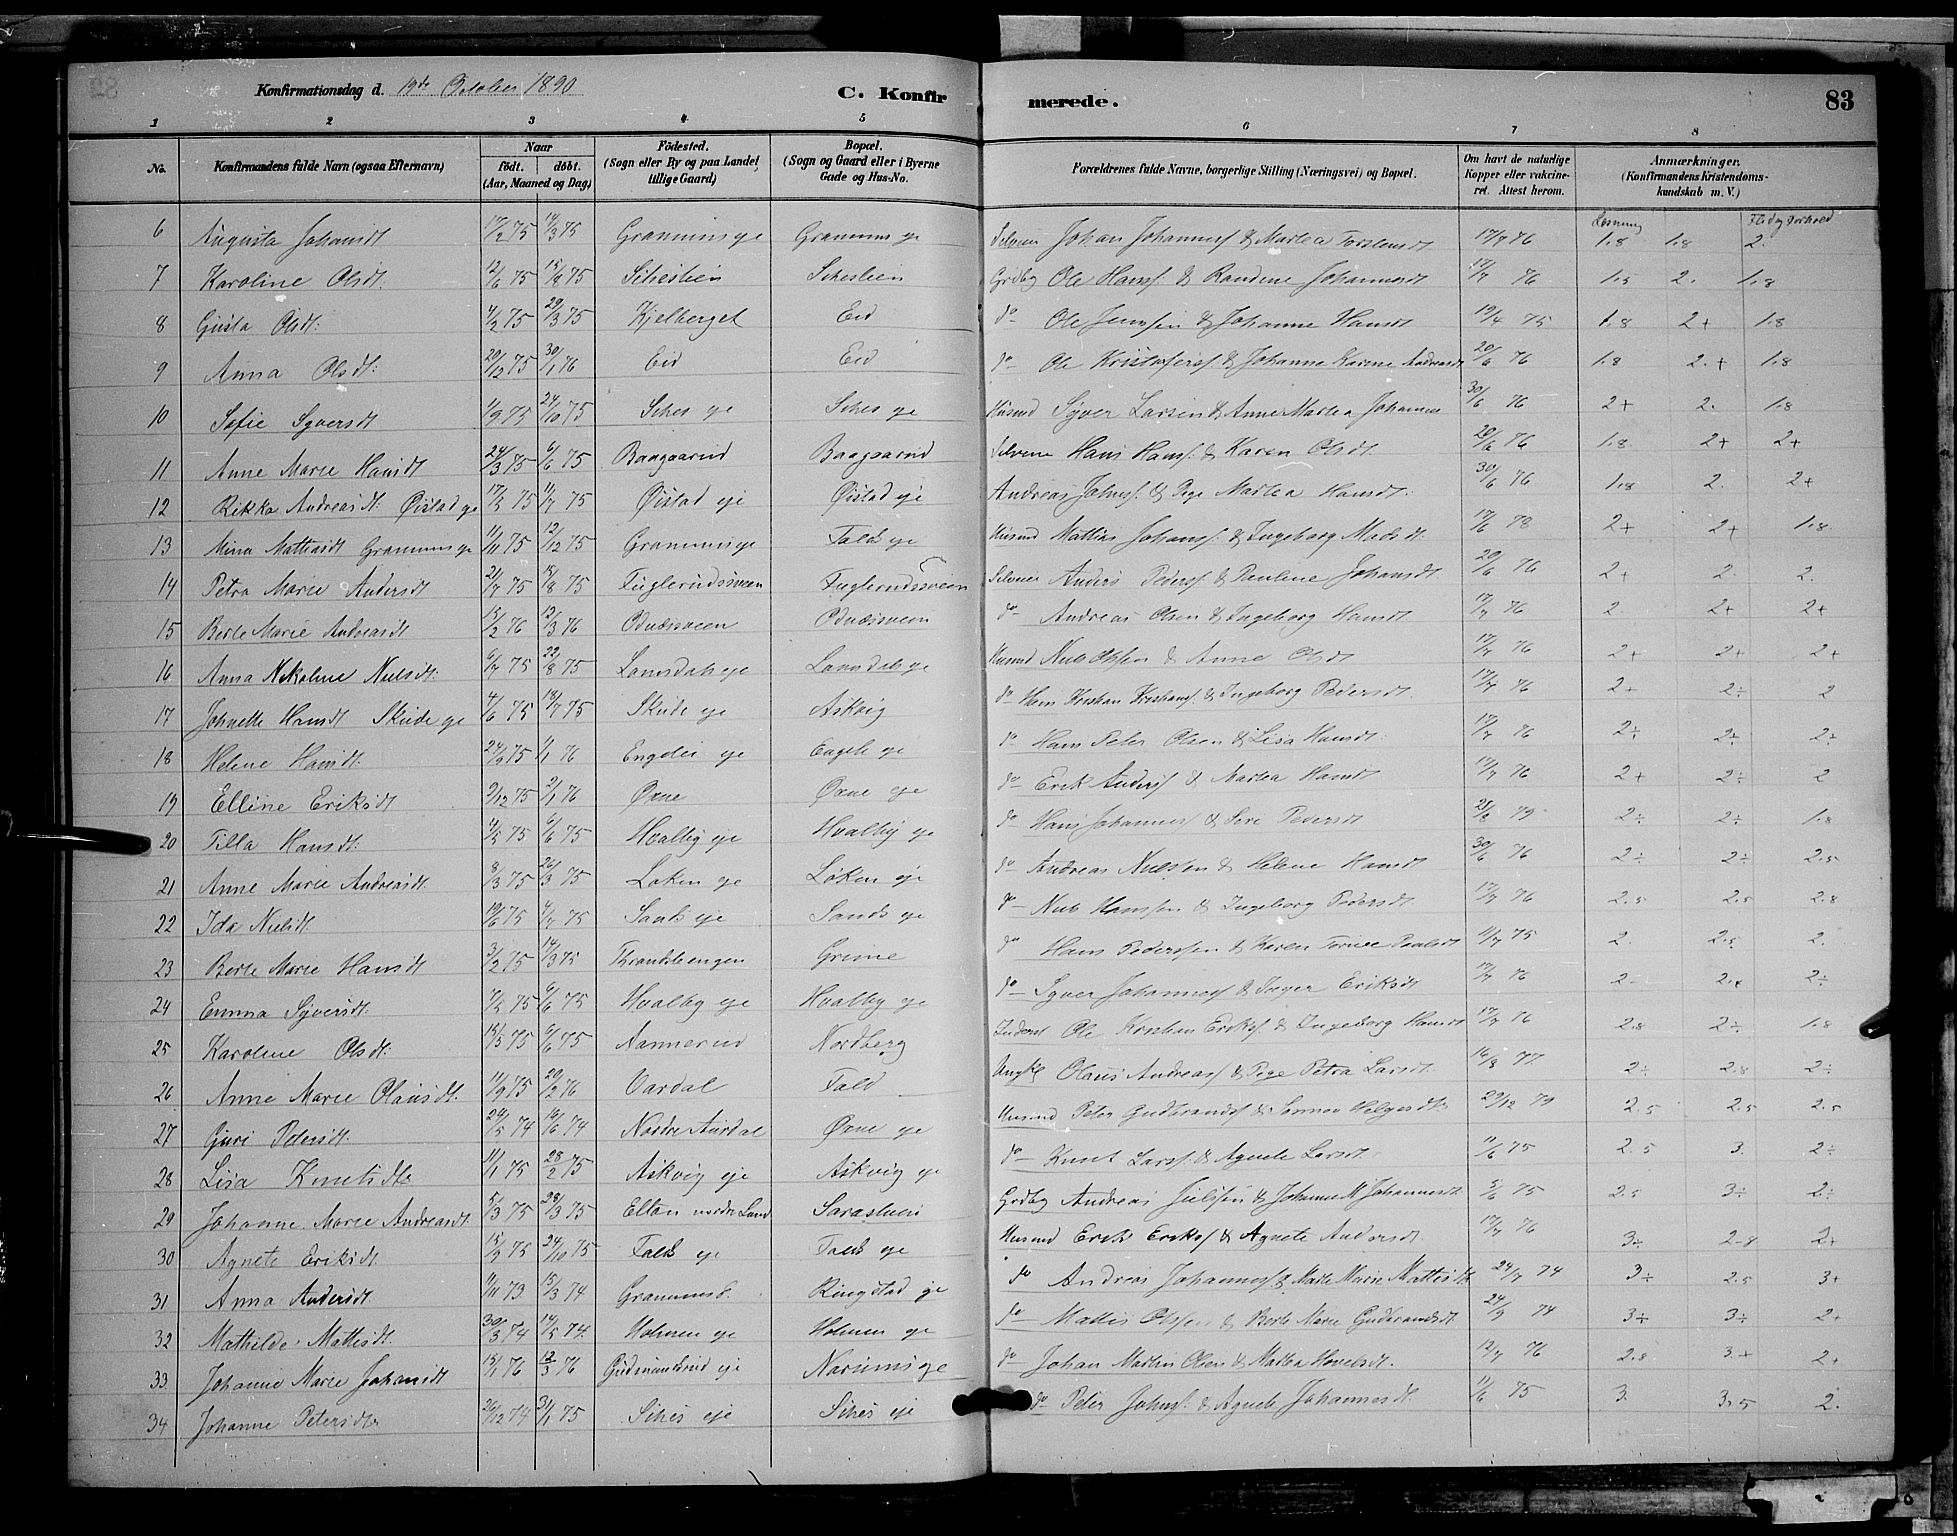 Konfirmationsdag d. 19de October 1890 C. Konfirmerede. 83
1 2 3 4 5 6 7 8
No. Konfirmandens fulde Navn (ogsaa Efternavn) Naar födt. döbt. (Aar, Maaned og Dag) Födested. (Sogn eller By og paa Landet tillige Gaard) Bopæl. (Sogn og Gaard eller i Byerne Gade og Hus-No. Forældrenes fulde Navne, borgerlige Stilling (Næringsvei) og Bopæl. Om havt de naturlige Kopper eller vakcineret. Attest herom. Anmærkninger. (Konfirmandens Kristendomskundskab m. V.)
6 Augusta Johansdt 17/2 75 14/3 75 Granumseje Granumseje Selveier Johan Johannes & Martea Torstensdt 17/7 76 1.8 1.8 2.
7 Karoline Olsdt. 12/6 75 15/8 75 Ole Hans. & Randine Johannesdt 17/7 76 1.5 2. 1.8
8 Gusta Olsdt: 4/2 75 29/3 75 Kjelberget Eid do Ole Jensen & Johanne Hansdt 19/4 75 1.8 2+ 1.8
9 Anna Olsdt: 20/12 75 30/1 76 Eid Eid do Ole Kristofers & Johanne Karine Andreasdt 20/6 76 1.8 2.+ 1.8
10 Sofie Syversdt 1/9 75 24/10 75 Husmd Syver Larsen & Anne Martea Johannes 30/6 76 2+ 2. 1.8
11 Anne Marie Hansdt 24/3 75 6/6 75 Baagaarud Baagaarud Hans Hans. & Karen Olsdt. 20/6 76 1.8 2+ 2+
12 Rikka Andreasdt. Øistad eje 17/5 75 11/7 75 Øistad eje Øistad eje Andreas Johns. & Martea Hansdt. 30/6 76 1.8 2. 2+
13 Mina Mattiasdt Granumseje 11/11 75 12/12 75 Granumseje Falds eje Husmd Mattias Johans. & Ingeborg Madsdt. 17/6 78 2+ 2+ 1.8
14 Petra Marie Andersdt 21/7 75 15/8 75 Fuglerudsveen Fuglerudsveen Selveier Anders Peders. & Pauline Johansdt. 20/6 76 2+ 2. 2.
15 Berte Marie Andreasdt 15/2 76 12/3 76 Odnæsveen Odnæsveen do Andreas Olsen & Ingeborg Hansdt 17/7 76 2 2+ 2+
16 Anna Nikoline Nielsdt. 6/7 75 22/8 75 Landsdals eje Landsdals eje Husmd Niels Olsen & Anne Olsdt 17/7 76 2+ 2+ 2+
17 Johnette Hansdt Skute eje 4/6 75 18/7 75 Skute eje Askvig do Hans Kristian Kristians. & Ingeborg Pedersdt. 17/7 76 2+ 2÷ 2
18 Helene Hansdt. 24/9 75 1/1 76 Engelie eje Engelie eje do Hans Peter Olsen & Lisa Hansdt. 17/7 76 2÷ 2÷ 2÷
19 Elline Eriksdt 9/12 75 2/1 76 Øxne Øxne eje do Erik Anders. & Martea Hansdt 17/7 76 2+ 2÷ 2
20 Tilla Hansdt. 4/5 75 6/6 75 Hvalby eje Hvalby eje do Hans Johannes. & Siri Pedersdt 21/6 79 2÷ 2÷ 1.8
21 Anne Marie Andreasdt. 8/3 75 26/3 75 Løken eje Løken eje do Andreas Nielsen & Helene Hansdt 30/6 76 2÷ 2÷ 2.5
22 Ida Nielsdt. 19/6 75 4/7 75 Sands eje Sands eje do Niels Hanssen & Ingeborg Pedersdt. 17/7 76 2.5 2.5 2.8
23 Berte Marie Hansdt 3/2 75 14/3 75 Grime do Hans Pederssen & Karen Paulsdt 11/7 75 2. 2.5 2.
24 Emma Syversdt. 7/5 75 6/6 75 Hvalby eje Hvalby eje do Syver Johannes & Inger Eriksdt 17/7 76 2- 2.+ 2÷
25 Karoline Olsdt. 15/5 75 6/6 75 Aannerud Nordberg Ole Kristian Eriks. & Ingeborg Hansdt 17/7 76 2.8 2÷ 1.8
26 Anne Marie Olausdt. 11/9 75 20/2 76 Vardal Fald Ungkl Olaus Andreas. & Pige Petra Larsdt. 16/8 77 2÷ 2.8 2÷
27 Guri Petersdt. 24/5 74 16/6 74 Nordre Aurdal Øxne eje Husmd Peter Gudbrands. & Helgesdt. 29/12 79 2.5 2.5 2.5
28 Lisa Knutsdt. 11/1 75 28/2 75 Askvig eje Askvig eje do Knut Lars. & Agnete Larsdt. 11/6 75 2.5 3. 2÷
29 Johanne Marie Andreasdt. 5/3 75 28/3 75 nordre Land Grdbr Andreas & Johanne M. Johannesdt. 5/6 75 2.5 3÷ 2÷
30 Agnete Eriksdt. 15/9 75 24/10 75 Falds eje Falds eje Husmd Erik Eriks. & Agnete Andersdt 17/7 76 3÷ 2.8 2+
31 Anna Andersdt. 11/11 73 15/3 74 Granums e. Ringstad eje do Andreas Johannes. & Marte Marie Mattisdt. 24/7 74 3÷ 2.5 3+
32 Mathilde Mattisdt. 30/3 74 14/5 74. Holmen eje Holmen eje do Mattis Olssen & Berte Marie Gudbrandsdt. 24/9 74 3÷ 3÷ 2+
33 Johanne Marie Johansdt 15/1 76 12/3 76 Gudmundsrud eje Narums eje do Johan Martin Olsen & Martea Hovelsdt. 12/7 76 2.8 3.+ 2+
34 Johanne Petersdt. 26/12 74 31/1 75 do Peter Johns. & Agnete Johannesdt. 11/6 75 3. 3.5 2.